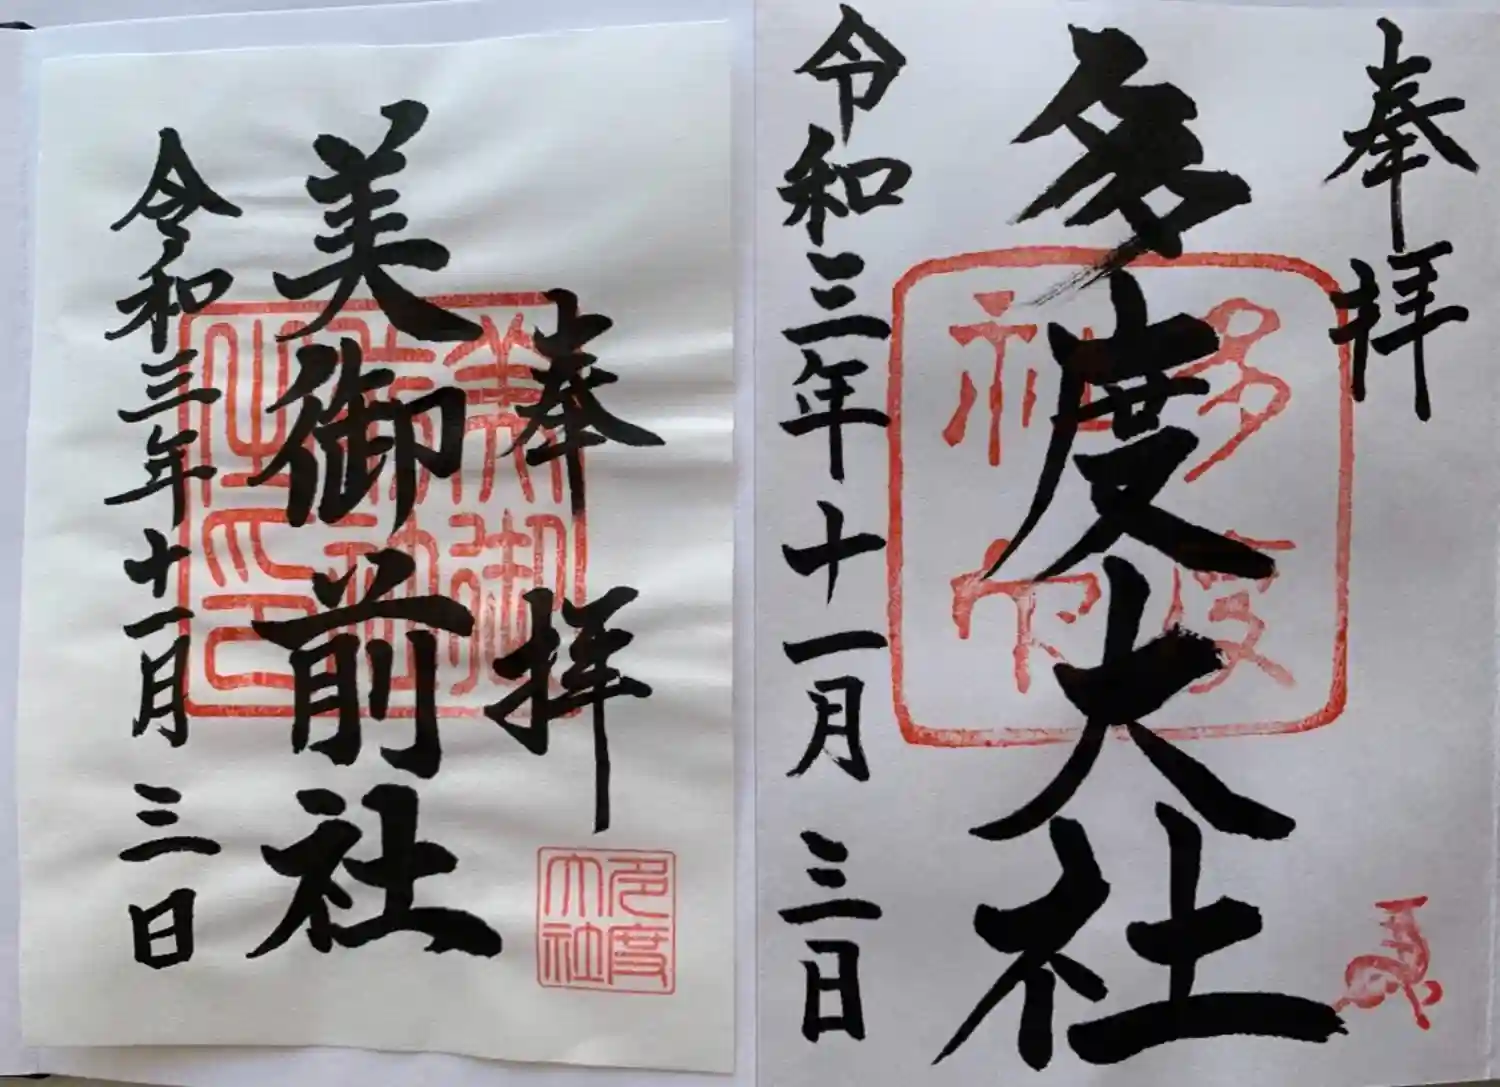 奉拝
美御前社
令和三年十一月三日
多度大社
奉拝
多度大社
令和三年十一月三日